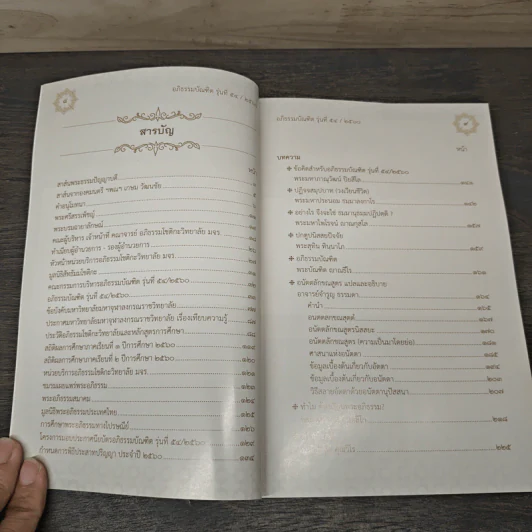 อภิธรรมบัณฑิต รุ่นที่ ๕๔ / ๒๕๖๐
สารบัญ
หน้า
สาส์นพระธรรมปัญญาบดี
สาส์นจากองคมนตรี ฯพณฯ เกษม วัฒนชัย
คำอนุโมทนา
พระศรีสรรเพชญ์
พระบรมฉายาลักษณ์
คณะผู้บริหาร เจ้าหน้าที่ คณาจารย์ อภิธรรมโชติกะวิทยาลัย มจร.
ทำเนียบผู้อำนวยการ - รองผู้อำนวยการ
หัวหน้าหน่วยบริการอภิธรรมโชติกะวิทยาลัย มจร.
มูลนิธิสัทธัมมโชติกะ
คณะกรรมการบริหารอภิธรรมบัณฑิต รุ่นที่ ๕๔/๒๕๖๐
อภิธรรมบัณฑิต รุ่นที่ ๕๔/๒๕๖๐
ข้อบังคับมหาวิทยาลัยมหาจุฬาลงกรณราชวิทยาลัย
ประกาศมหาวิทยาลัยมหาจุฬาลงกรณราชวิทยาลัย เรื่องเทียบความรู้
ประวัติอภิธรรมโชติกะวิทยาลัยและหลักสูตรการศึกษา
สถิติผลการศึกษาภาคเรียนที่ ๑ ปีการศึกษา ๒๕๖๐
สถิติผลการศึกษาภาคเรียนที่ ๒ ปีการศึกษา ๒๕๖๐ ๑๒๐
หน่วยบริการอภิธรรมโชติกะวิทยาลัย มจร. ๑๒๑
ชมรมเผยแพร่พระอภิธรรม ๑๒๓
พระอภิธรรมสมาคม ๑๒๔
มูลนิธิพระอภิธรรมประเทศไทย ๑๒๕
การศึกษาพระอภิธรรมทางไปรษณีย์ ๑๒๖
โครงการมอบประกาศนียบัตรอภิธรรมบัณฑิต รุ่นที่ ๕๔/๒๕๖๐ ๑๒๙
กำหนดการพิธีประสาทปริญญา ประจำปี ๒๕๖๐ ๑๓๕
อภิธรรมบัณฑิต รุ่นที่ ๕๔ / ๒๕๖๐
หน้า
บทความ
ข้อคิดสำหรับอภิธรรมบัณฑิต รุ่นที่ ๕๔/๒๕๖๐
พระมหาภาณุวัฒน์
ปฏิจจสมุปบาท (วงเวียนชีวิต)
พระมหาประนอม ธมฺมาลงฺกาโร
อย่างไร จึงจะใช่ ธมฺมานุธมฺมปฏิปตฺติ ?
พระมหาไพโรจน์ ญาณกุสโล
ปกตูปนิสสยปัจจัย
พระสุทิน ทินนาโภ
อภิธรรมบัณฑิต
พระบัณฑิต ญาณธีโร ๑๖๑
อนัตตลักขณสูตร แปลและอธิบาย
อาจารย์จำรูญ ธรรมดา ๑๖๔
คำนำ
อนตฺตลกฺขณสุตฺตํ
อนัตตลักขณสูตรนิสสยะ
อนัตตลักขณสูตร (ความเป็นมาโดยย่อ)
ศาสนาแห่งอนัตตา ๑๘๕
ข้อมูลเบื้องต้นเกี่ยวกับอัตตา ๑๙๔
ข้อมูลเบื้องต้นเกี่ยวกับอนัตตา
วิธีสลายอัตตาด้วยอนัตตานุปัสสนา
๒๑๘
๒๒๕